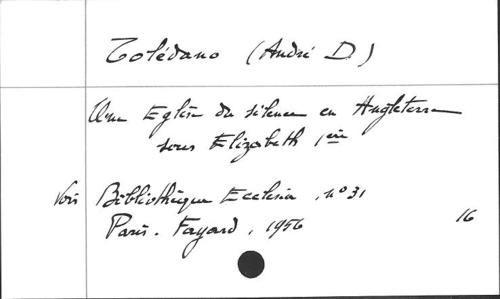 Tolédano (André D.)
Une Eglise du silence en Angleterre
sous Elizabeth 1ère
Voir Bibliothèque Ecclesia, n° 31
Paris. Fayard, 1956
16